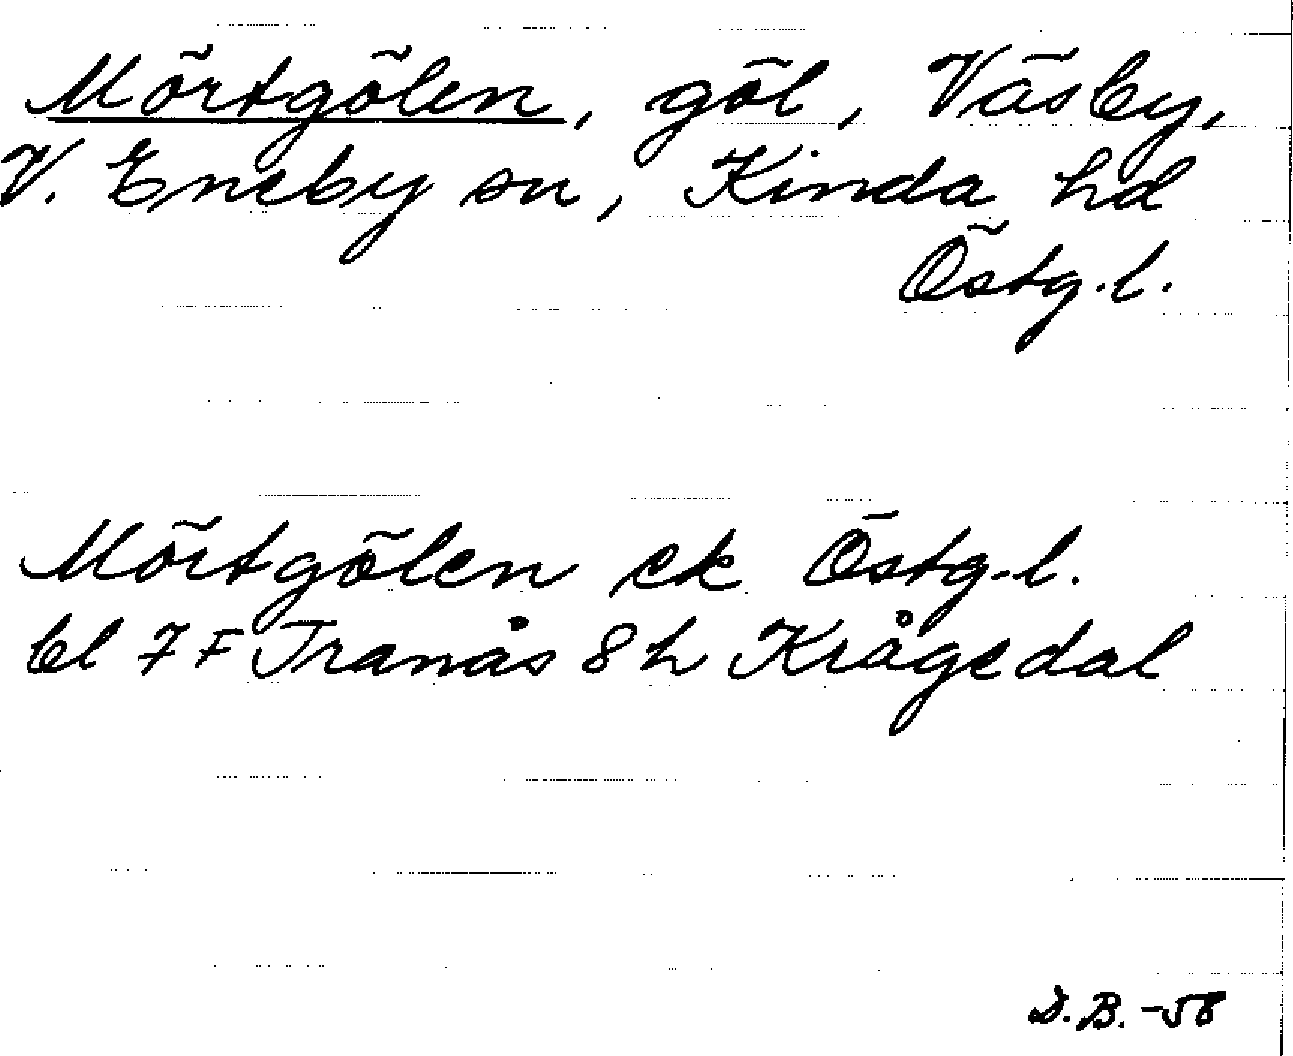 Mörtgölen, göl, Väsby,
V. Eneby sn, Kinda hd
Östg.l.
Mörtgölen ek Östg.l.
bl 7 F Tranås 8 h Krågedal
D.B. -58